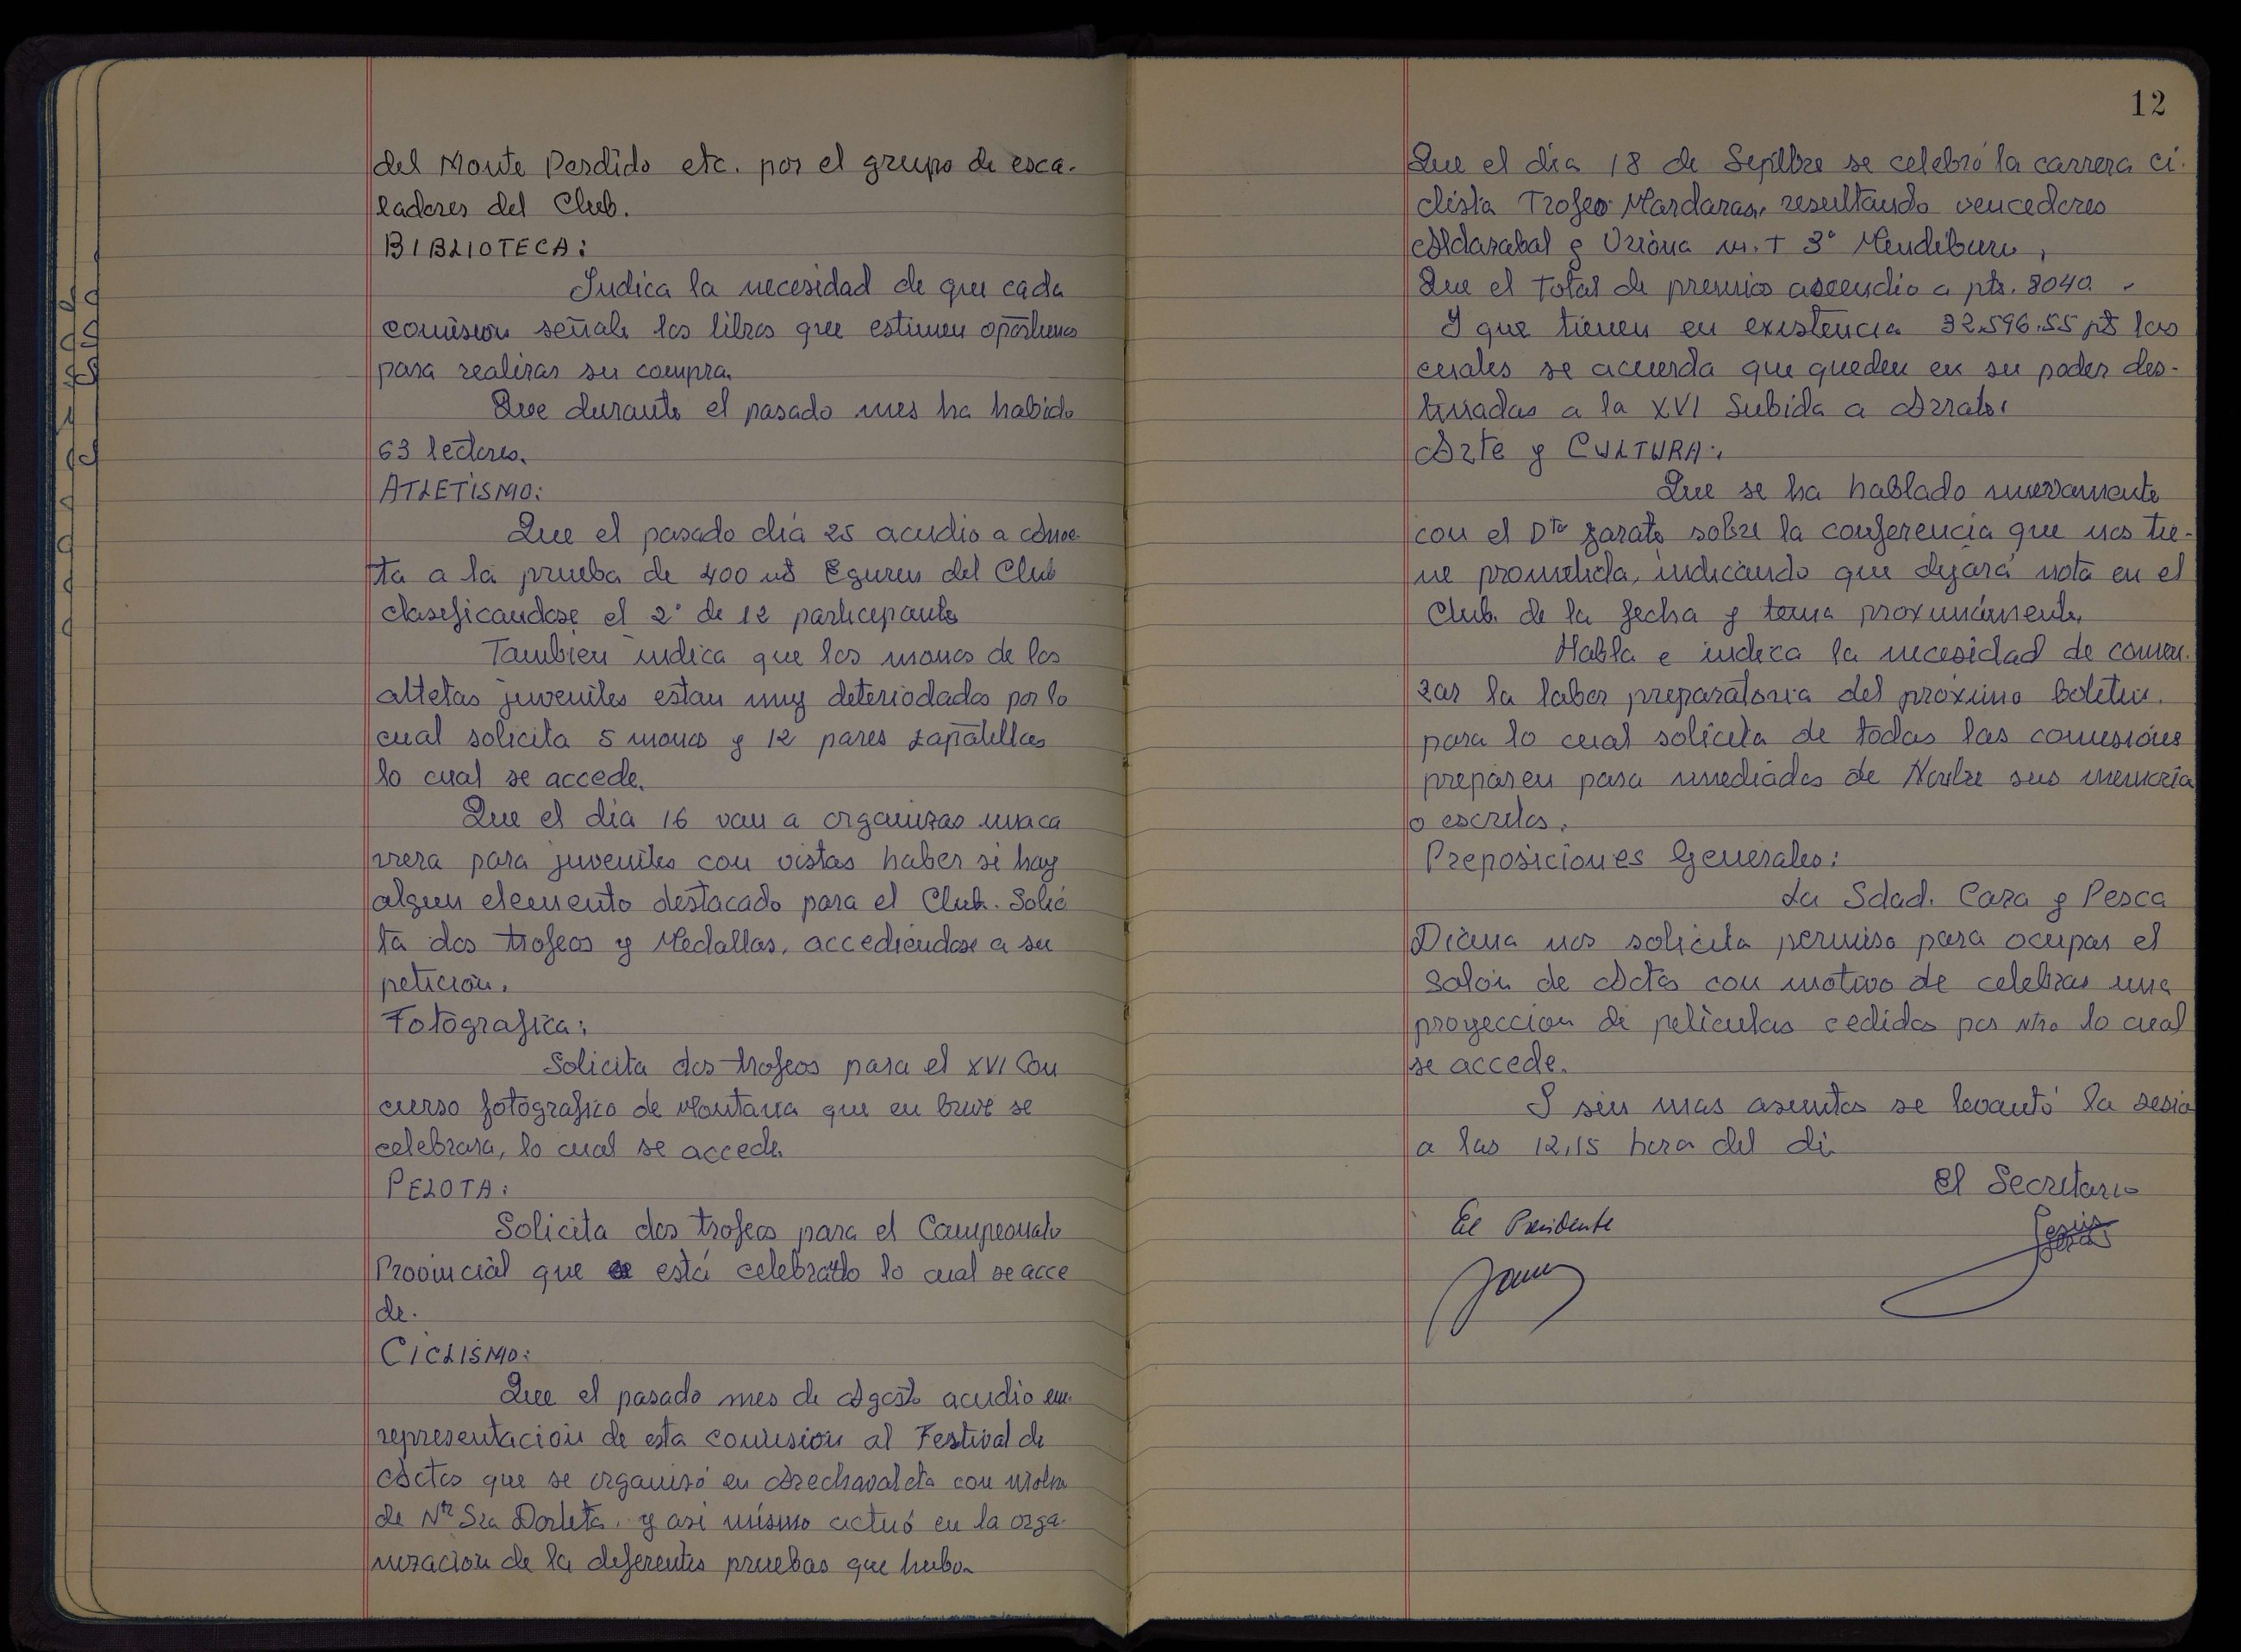 del Monte Perdido etc. por el grupo de esca-
ladores del Club.
BIBLIOTECA:
Indica la necesidad de que cada
comision señale los libros que estimen oportunos
para realizar su compra.
Que durante el pasado mes ha habido
63 lectores.
ATLETISMO:
Que el pasado día 25 acudio a Anoe-
ta a la prueba de 400 mts Eguren del Club
clasificandose el 2º de 12 participantes
Tambien indica que los monos de los
atletas juveniles estan muy deteriodados por lo
cual solicita 5 monos y 12 pares zapatillas
lo cual se accede.
Que el día 16 van a organizar una ca
rrera para juveniles con vistas haber si hay
algun elemento destacado para el Club. Solici
ta dos trofeos y Medallas, accediéndose a su
petición.
Fotografica:
Solicita dos trofeos para el XVI Con
curso fotografico de Montana que en breve se
celebrara, lo cual se accede.
PELOTA:
Solicita dos trofeos para el Campeonato
Provincial que está celebrando lo cual se acce
de.
CICLISMO:
Que el pasado mes de Agosto acudio en
representación de esta comision al Festival de
Actos que se organizó en Arechavaleta con motivo
de Ntr Sra Dorleta, y asi mismo actuó en la orga-
nizacion de la diferentes pruebas que hubo.
12
Que el día 18 de Septbre se celebró la carrera ci-
clista Trofeo Mardaras, resultando vencedores
Aldazabal y Uriona m.t 3º Mendiburu,
Que el total de premios ascendio a pts. 8040.-
Y que tienen en existencia 32.596.55 pts las
cuales se acuerda que queden en su poder des-
tinadas a la XVI Subida a Arrate.
Arte y CULTURA:
Que se ha hablado nuevamente
con el Dtor Zarate sobre la conferencia que nos tie-
ne prometida, indicando que dejará nota en el
Club. de la fecha y tema proximamente.
Habla e indica la necesidad de comen-
zar la labor preparatoria del próximo boletin.
para lo cual solicita de todas las comisiónes
preparen para mediados de Novbre sus memoria
o escritos.
Preposiciones Generales:
La Sdad. Caza y Pesca
Diana nos solicita permiso para ocupar el
Salón de Actos con motivo de celebrar una
proyeccion de peliculas cedidas por ntro lo cual
se accede.
Y sin mas asuntos se levantó la sesio
a las 12,15 hora del di
El Secretario
El Presidente